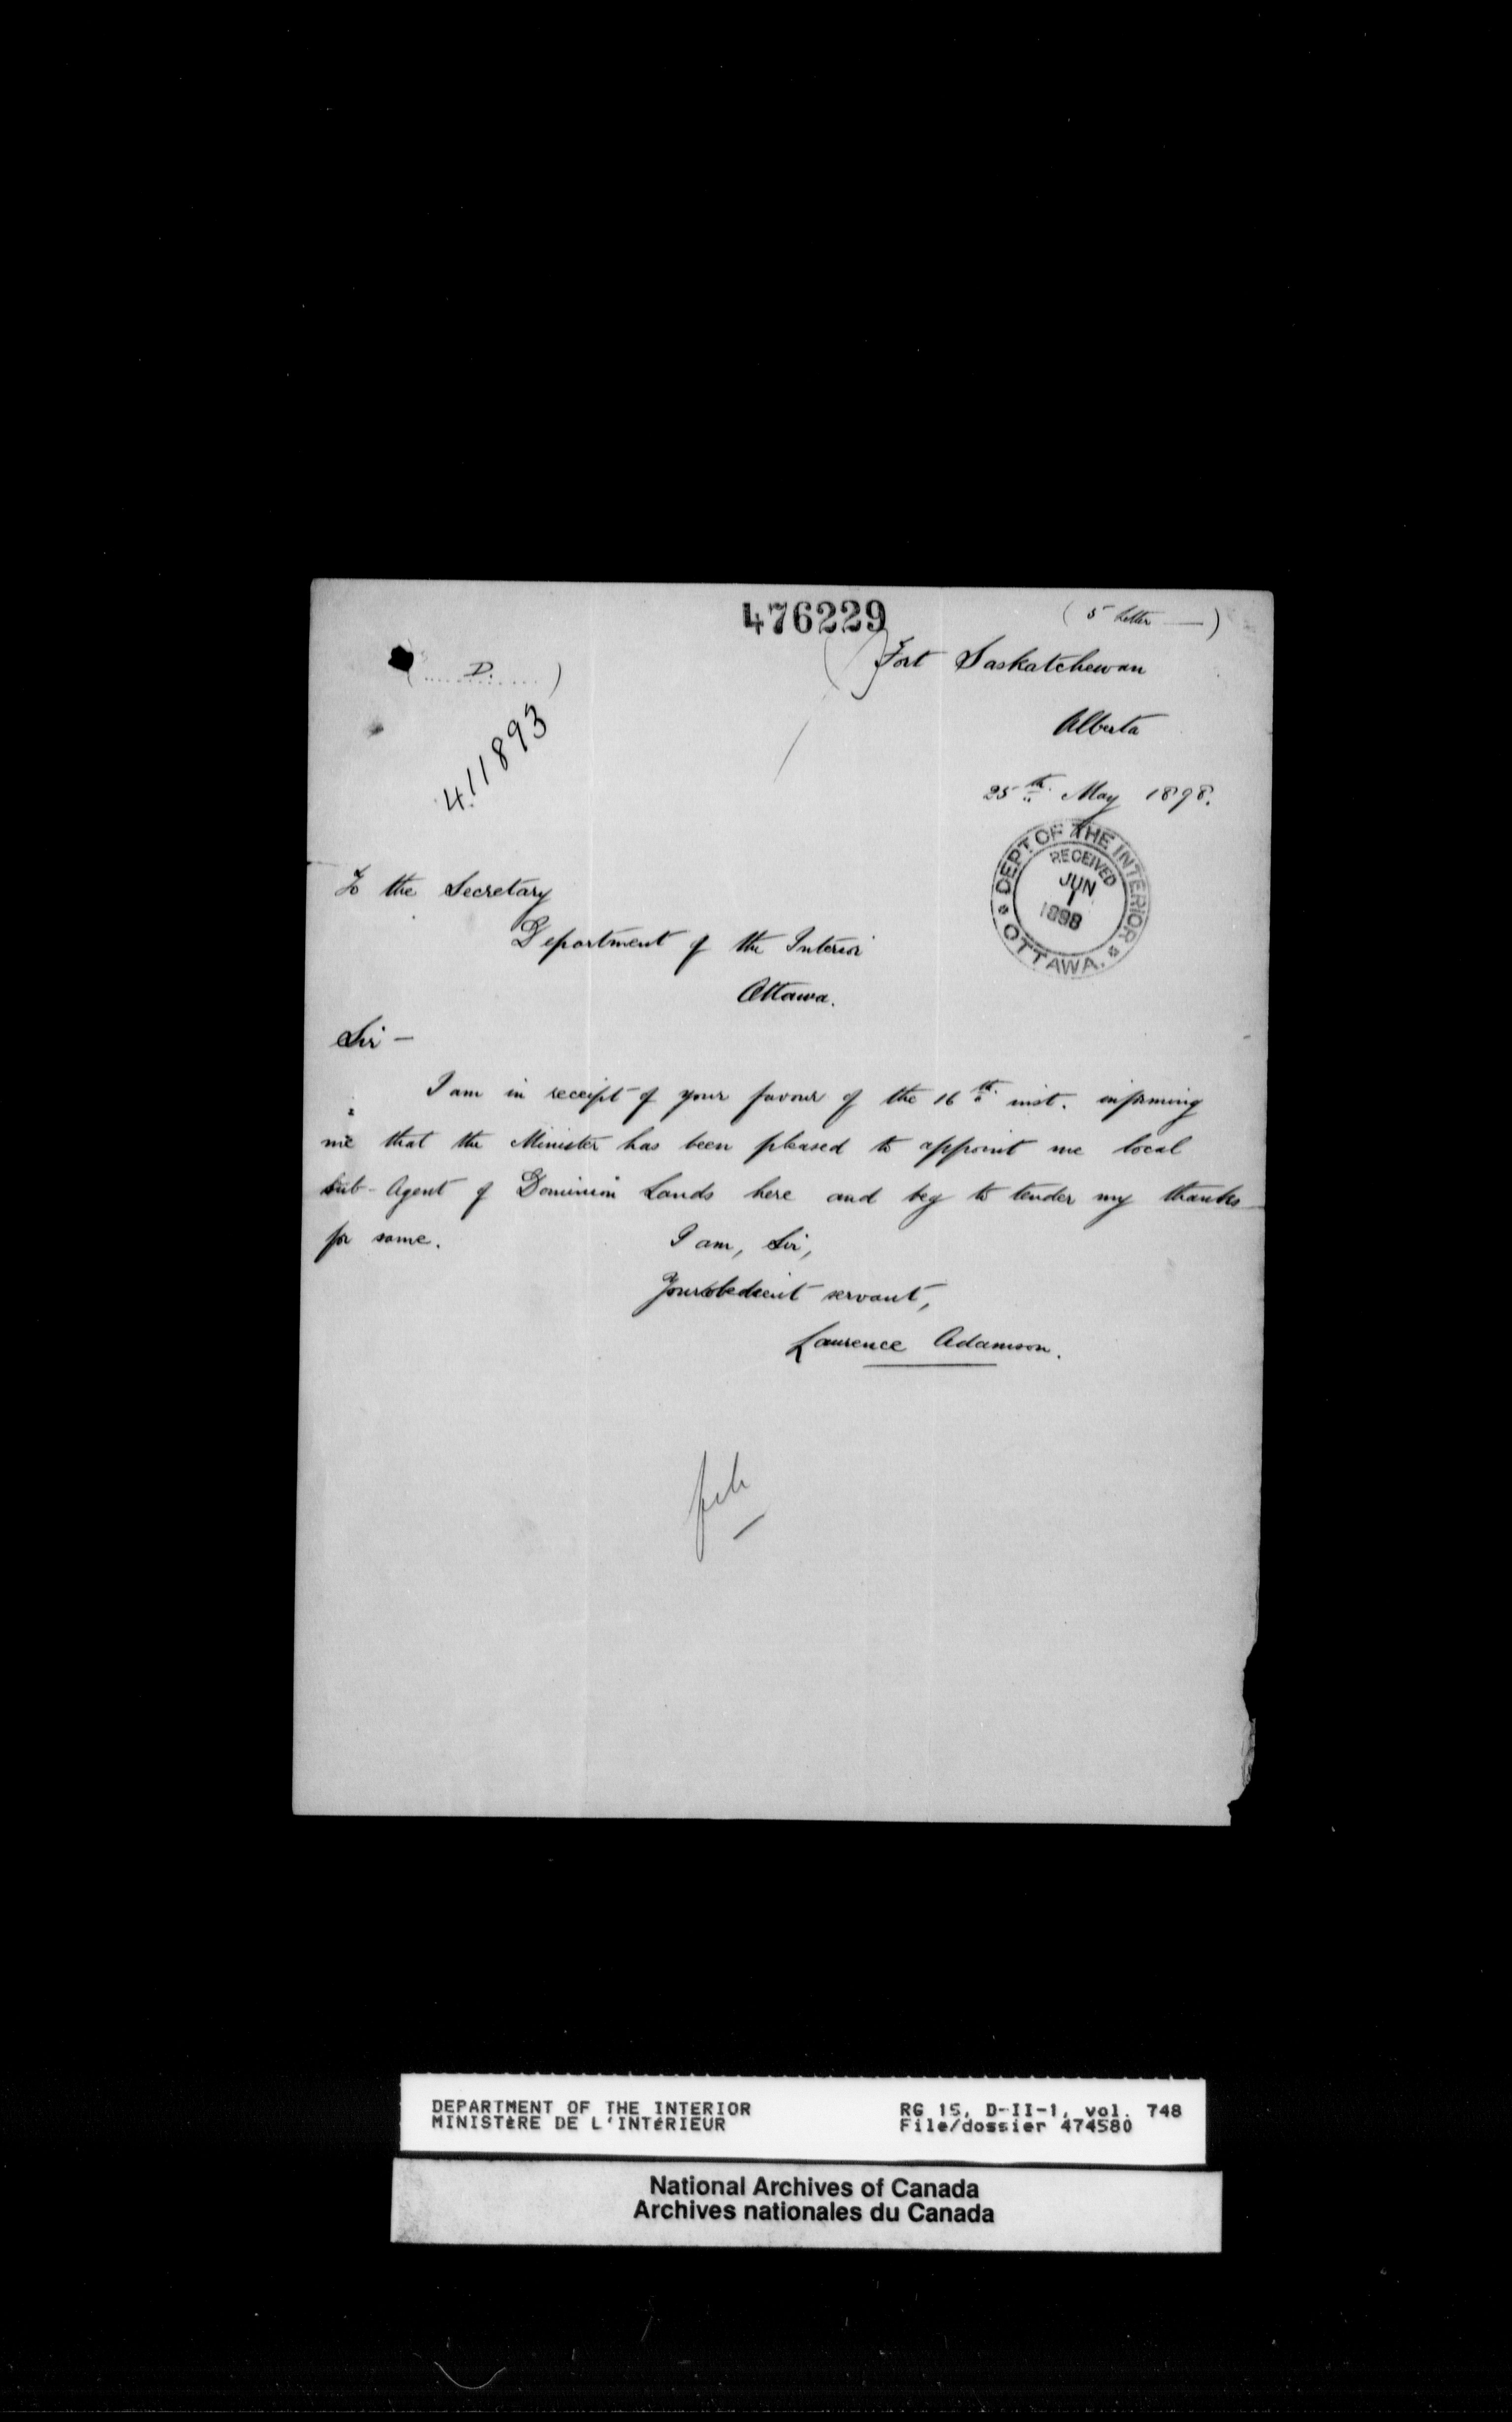 476229
( 5 Letter — )
Fort Saskatchewan
( D. )
411893
Alberta
25th May 1898.
DEPT. OF THE INTERIOR
RECEIVED
JUN
1
1898
OTTAWA.
To the Secretary
Department of the Interior
Ottawa.
Sir —
I am in receipt of your favour of the 16th inst. informing
me that the Minister has been pleased to appoint me local
sub-Agent of Dominion Lands here and beg to tender my thanks
for same.
I am, Sir,
Your obedient servant,
Laurence Adamson.
file
DEPARTMENT OF THE INTERIOR RG 15, D-II-1, vol. 748
MINISTÈRE DE L'INTÉRIEUR File/dossier 474580
National Archives of Canada
Archives nationales du Canada